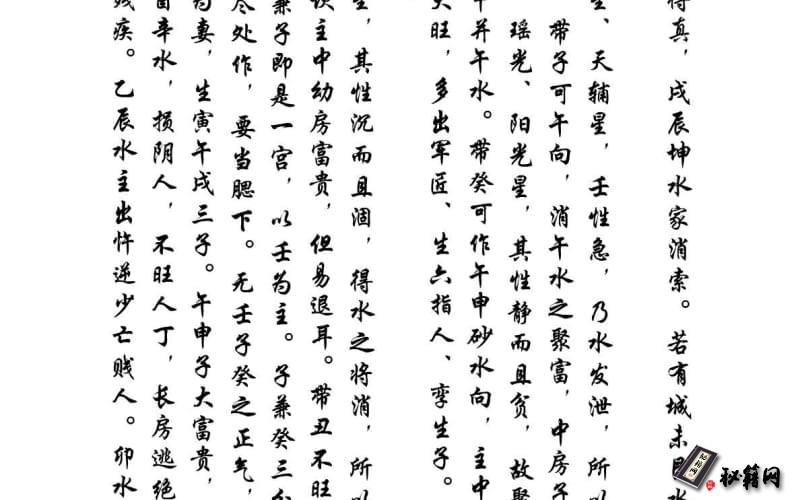 得真，戌辰坤水家消索。若有城未
生、天辅星，壬性急，乃水发泄，所以
带子可午向，消午水之聚富，中房子
瑶光、阳光星，其性静而且贫，故聚
午并午水。带癸可作午申砂水向，主中
大旺，多出军匠、生六指人、孪生子。
生，其性沉而且涸，得水之将消，所以
误主中幼房富贵，但易退耳。带丑不旺
兼子即是一宫，以壬为主。子兼癸三分
尽处作，要当腮下。无壬子癸之正气，
为妻，生寅午戌三子。午申子大富贵，
酉辛水，损阴人，不旺人丁，长房逃绝
残疾。乙辰水主出忤逆少亡贱人。卯水
秘籍网